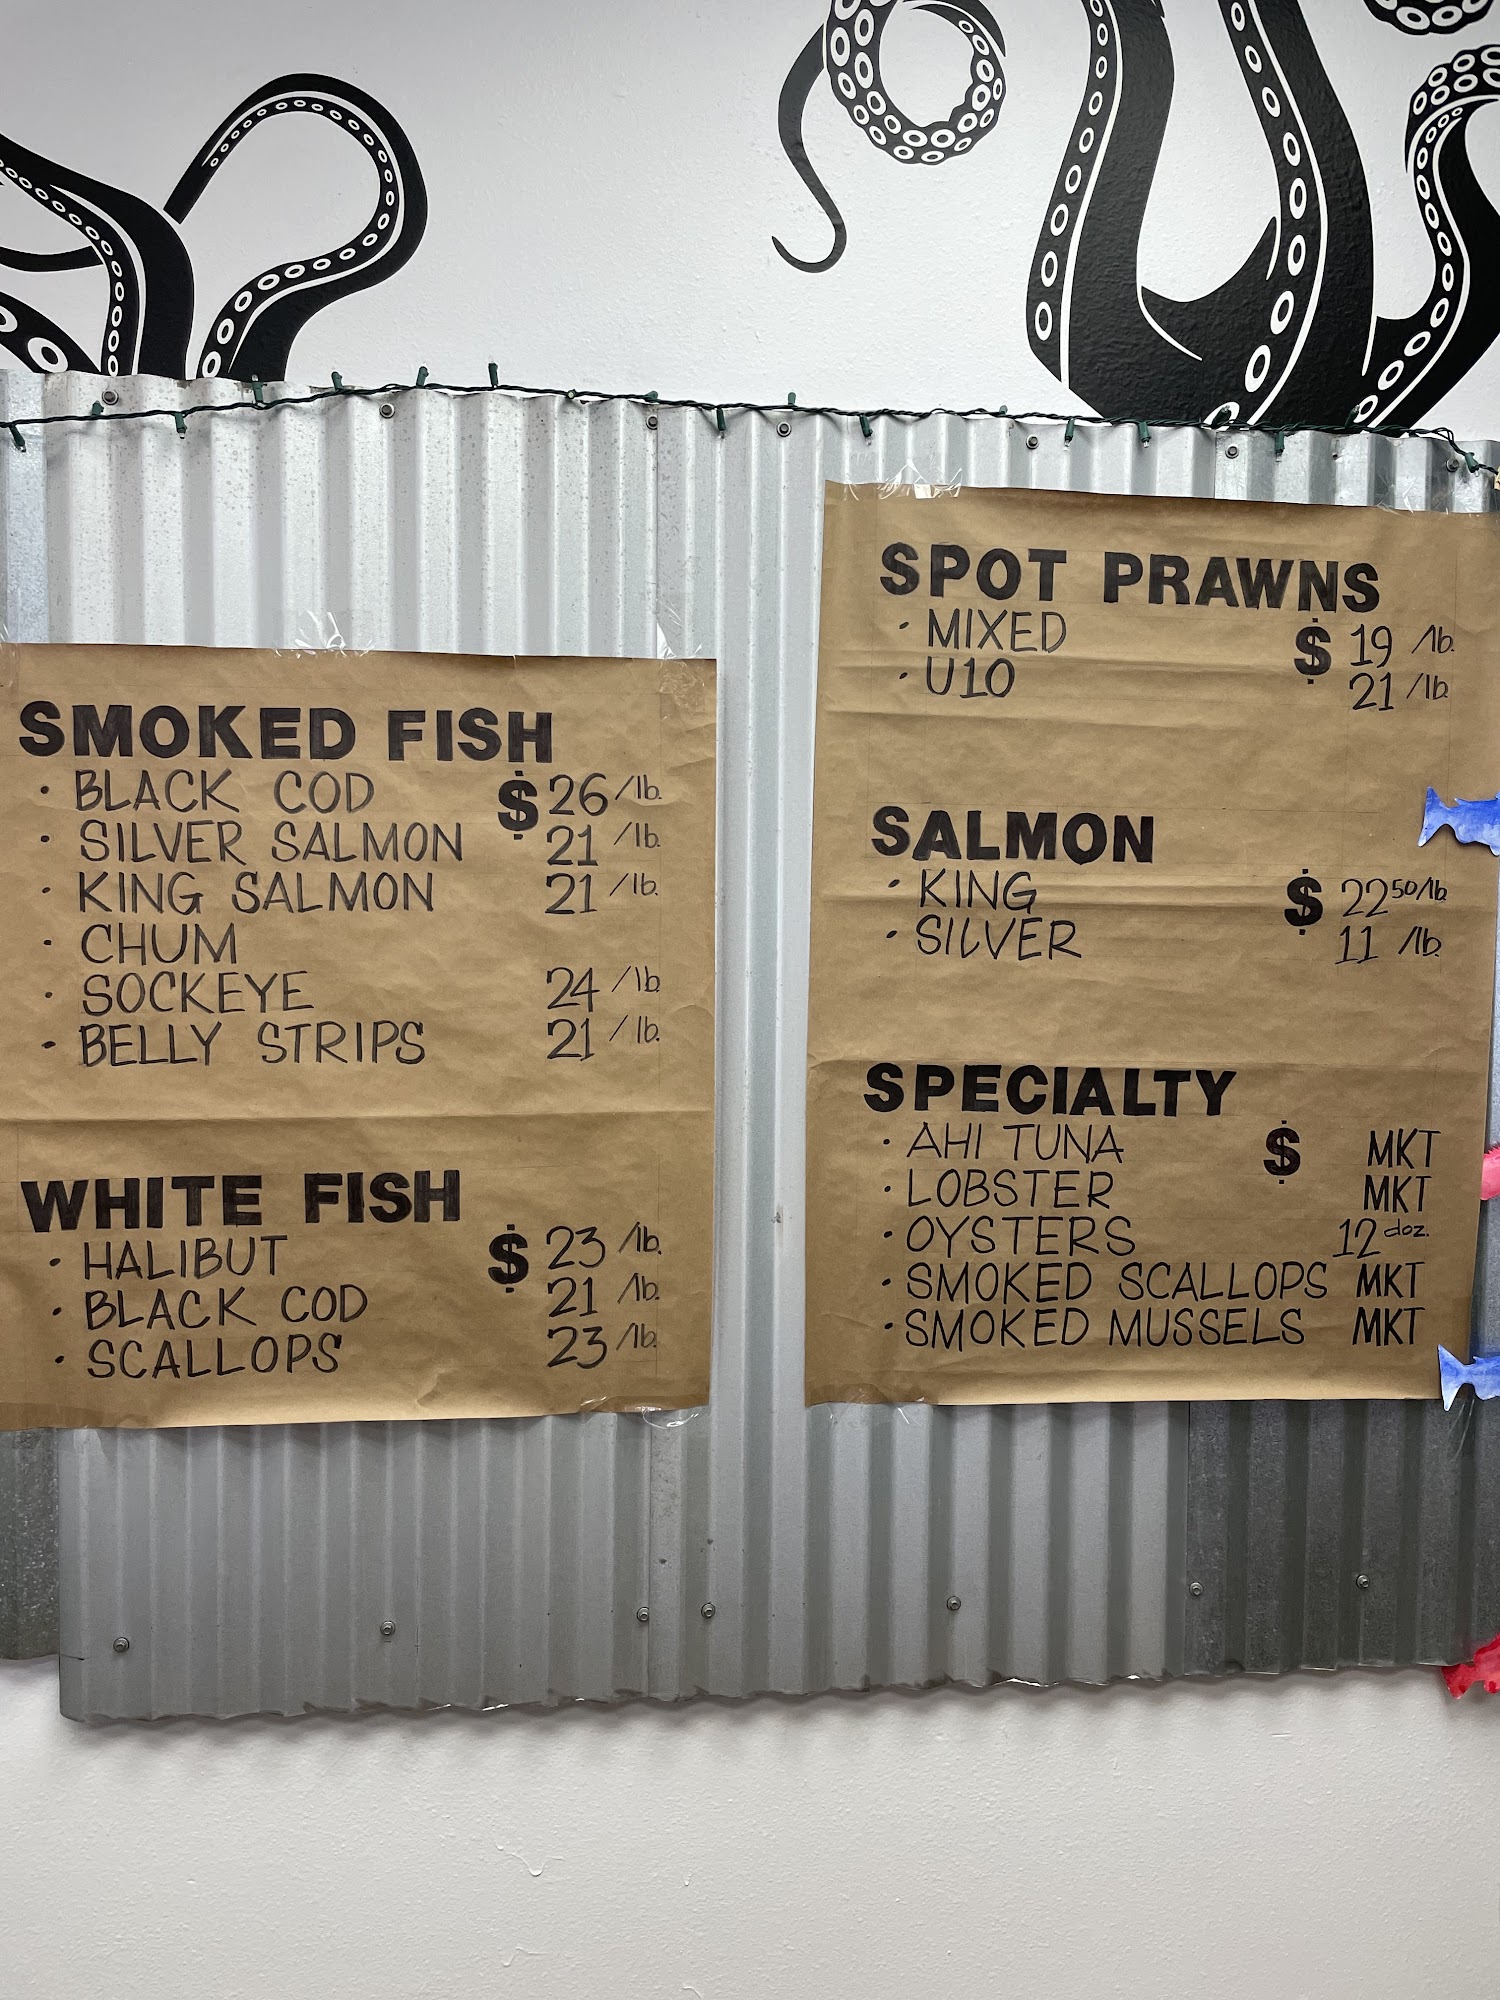 SMOKED FISH
· BLACK COD $ 26 /lb.
· SILVER SALMON 21 /lb.
· KING SALMON 21 /lb.
· CHUM
· SOCKEYE 24 /lb
· BELLY STRIPS 21 /lb.
WHITE FISH
· HALIBUT $ 23 /lb.
· BLACK COD 21 /lb.
· SCALLOPS 23 /lb.
SPOT PRAWNS
· MIXED $ 19 /lb.
· U10 21 /lb.
SALMON
· KING $ 22 50/lb.
· SILVER 11 /lb.
SPECIALTY
· AHI TUNA $ MKT
· LOBSTER MKT
· OYSTERS 12 doz.
· SMOKED SCALLOPS MKT
· SMOKED MUSSELS MKT